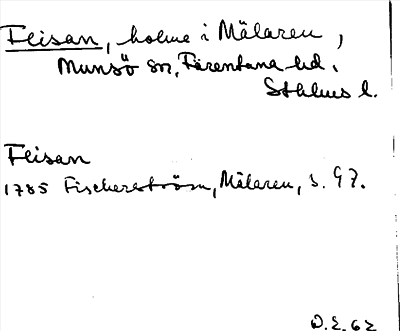 Flisan, holme i Mälaren,
Munsö sn, Färentuna hd.
Sthlms l.
Flisan
1785 Fischerström, Mälaren, s. 97.
D.E. 62